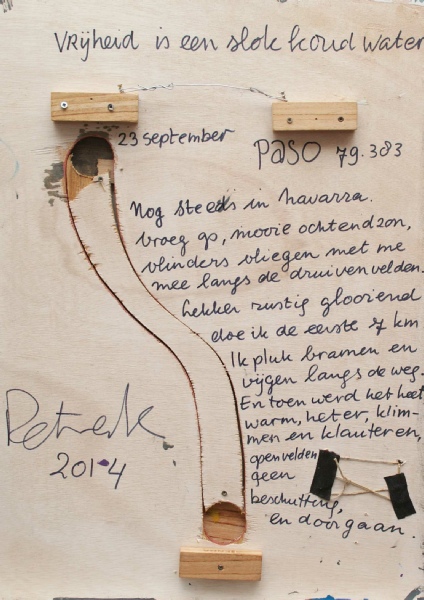 Vrijheid is een slok koud water
23 september
Paso 79.383
Nog steeds in Navarra.
Vroeg op, mooie ochtendzon,
vlinders vliegen met me
mee langs de druivenvelden.
Lekker rustig glooiend
doe ik de eerste 7 km
Ik pluk bramen en
vijgen langs de weg.
En toen werd het heet
warm, heter, klim-
men en klauteren,
open velden
geen
beschutting,
en doorgaan.
2014